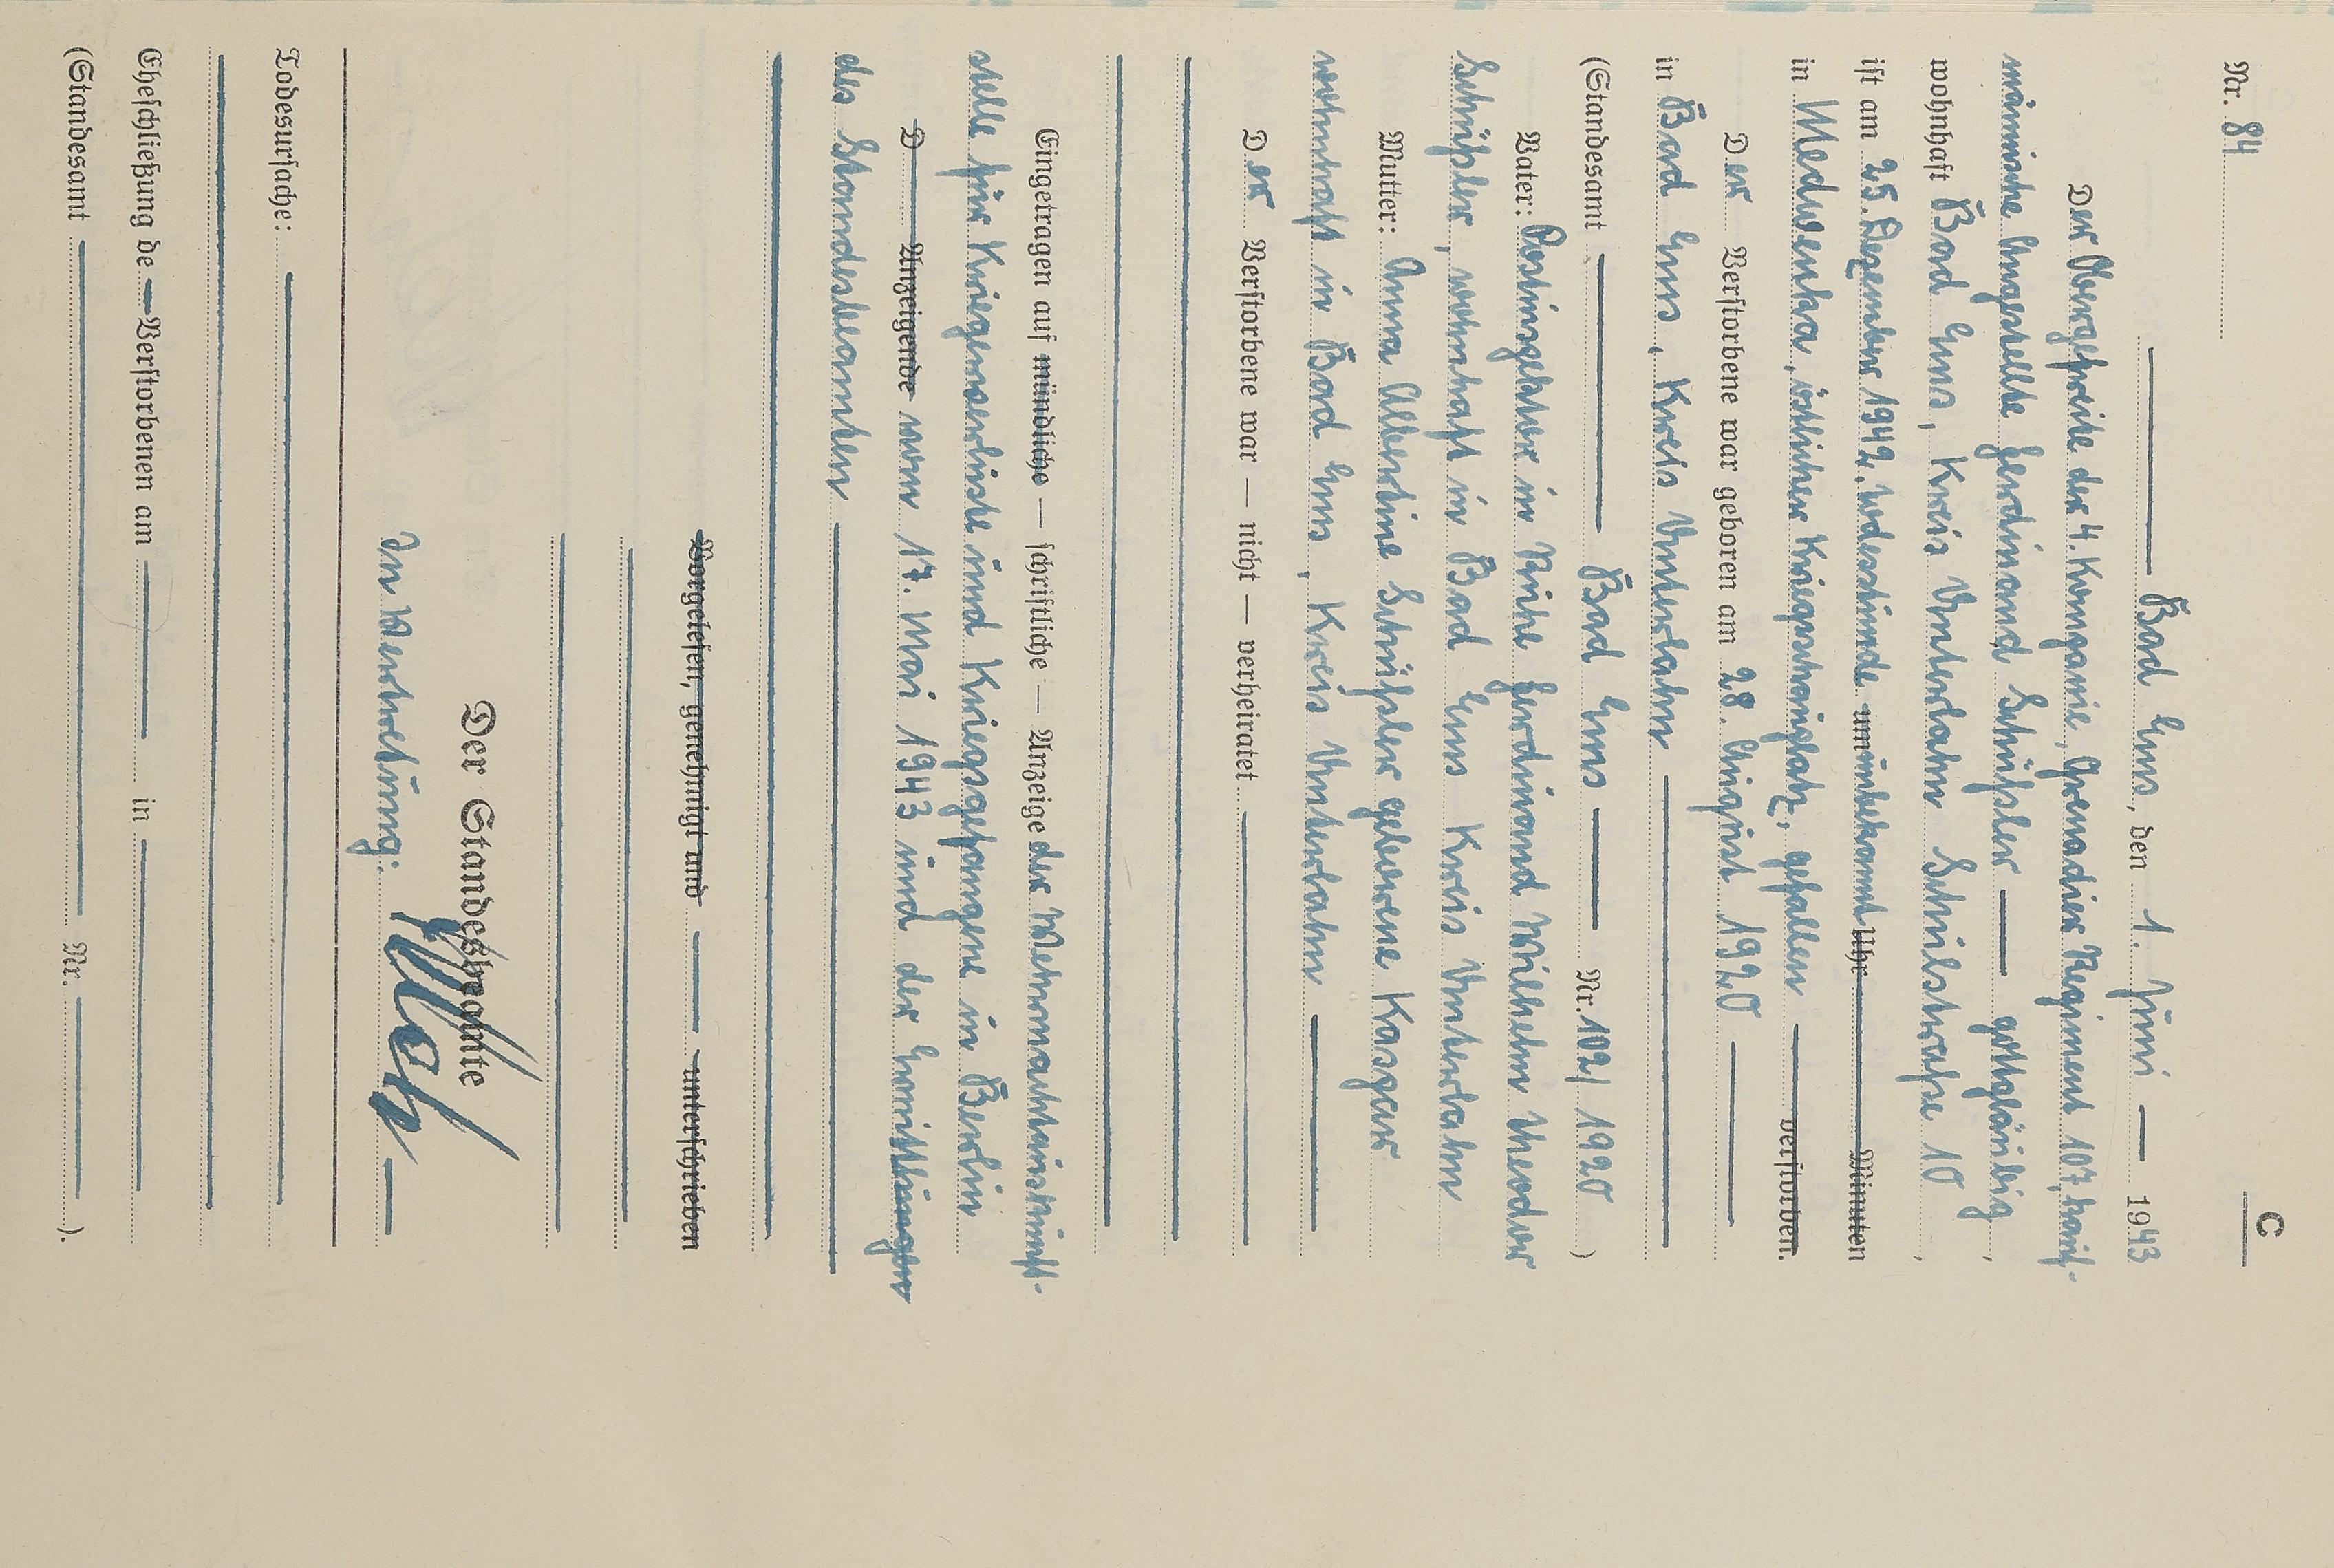 C
Nr. 84
Bad Ems, den 1. Juni 1943
Der Obergefreite der 4. Kompanie, Grenadier Regiment 107, kauf-
männische Angestellte Ferdinand Schüßler gottgläubig,
wohnhaft Bad Ems, Kreis Unterlahn Schulstraße 10,
ist am 25. Dezember 1942, Todesstunde um unbekannt Uhr Minuten
in Medwenka, östlicher Kriegsschauplatz, gefallen verstorben.
Der Verstorbene war geboren am 28. August 1920
in Bad Ems, Kreis Unterlahn
(Standesamt Bad Ems Nr. 102/1920)
Vater: Ferdinand Wilhelm Theodor
Schüßler, wohnhaft in Bad Ems Kreis Unterlahn
Mutter: Anna Albertine Schüßler geborene Kaspar
wohnhaft in Bad Ems, Kreis Unterlahn
Der Verstorbene war — nicht — verheiratet
Eingetragen auf mündliche — schriftliche — Anzeige der Wehrmachtauskunft-
stelle für Kriegerverluste und Kriegsgefangene in Berlin
D Anzeigende vom 17. Mai 1943 und der Ermittlungen
des Standesbeamten
Vorgelesen, genehmigt und unterschrieben
Der Standesbeamte
In Vertretung:
Todesursache:
Eheschließung de Verstorbenen am in
(Standesamt Nr. ).